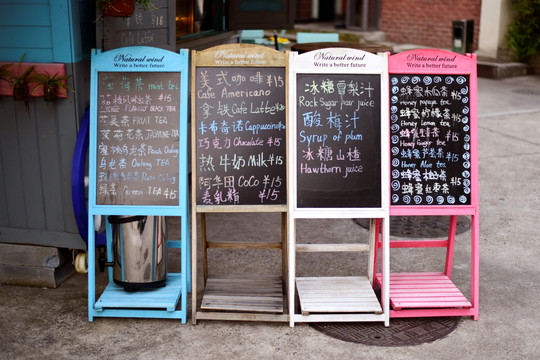 Natural wind
Write a better future
薄荷茶 mint tea ¥15
¥15
FLAVOUR BLACK TEA
花果茶 FRUIT TEA
茉莉花茶 JASMINE TEA
Peach Oolong
乌龙茶 Oolong TEA
绿茶 Green TEA ¥15
Natural wind
Write a better future
美式 咖啡 ¥15
Cafe Americano
拿铁 Cafe Latte
卡布奇诺 Cappuccino
巧克力 Chocolate ¥15
热牛奶 Milk ¥15
阿华田 CoCo ¥15
麦乳精 ¥15
Natural wind
Write a better future
冰糖雪梨汁
Rock Sugar pear juice
酸梅汁
Syrup of plum
冰糖山楂
Hawthorn juice
Natural wind
Write a better future
蜂蜜木瓜茶 ¥15
Honey papaya tea
蜂蜜柠檬茶 ¥15
Honey Lemon tea
蜂蜜生姜茶 ¥15
Honey Sugar tea
蜂蜜芦荟茶 ¥15
Honey Aloe tea
蜂蜜柚子茶 ¥15
蜂蜜红枣茶 ¥15